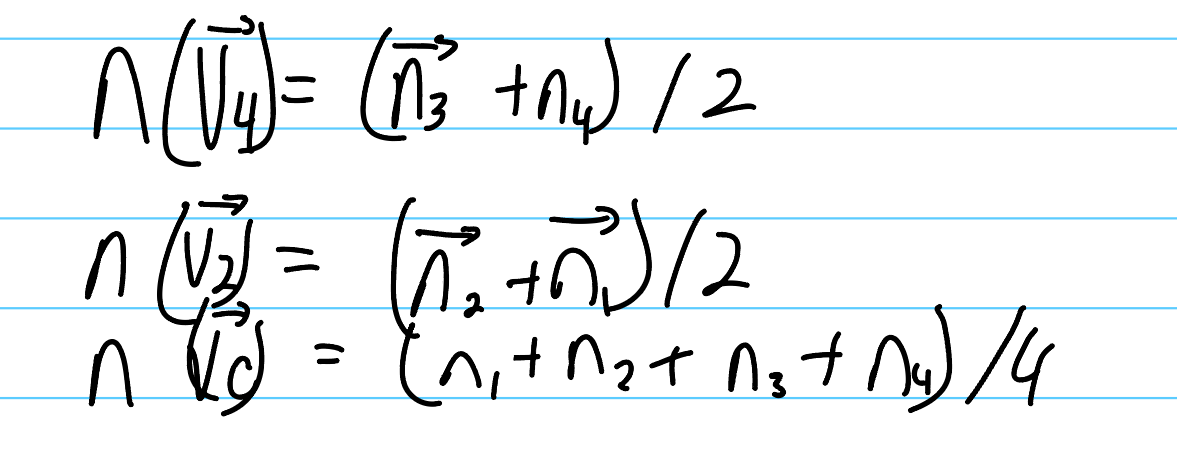 n(\vec{v_4}) = (\vec{n_3} + n_4) / 2
n(\vec{v_2}) = (\vec{n_2} + \vec{n_1}) / 2
n(\vec{v_c}) = (n_1 + n_2 + n_3 + n_4) / 4